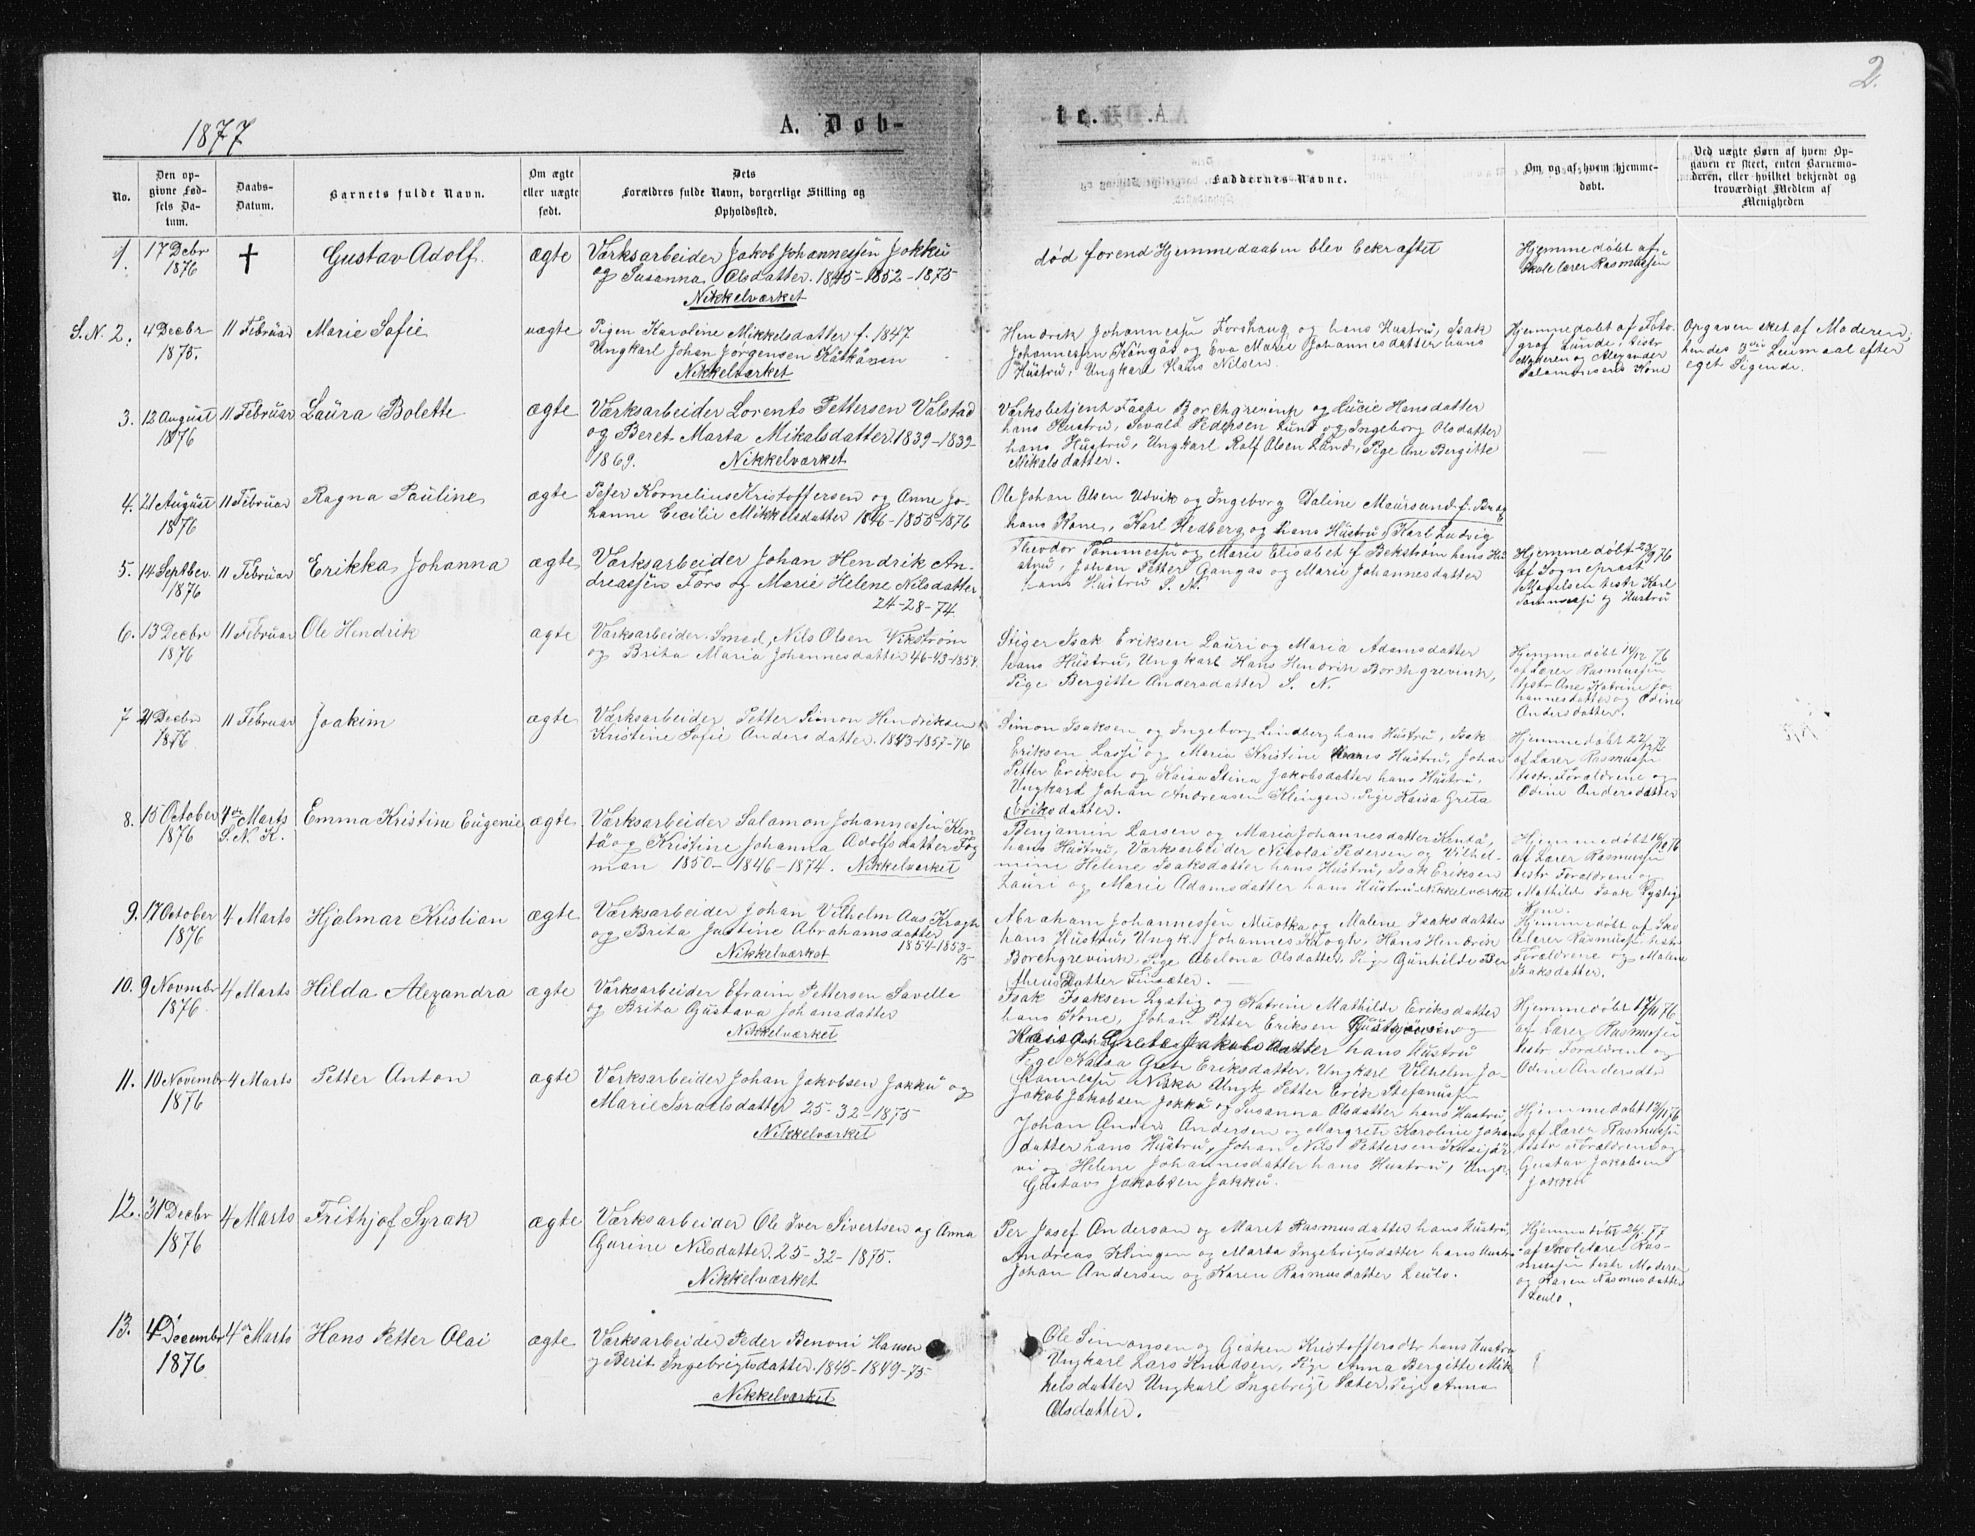 2.
1877
A. Døb-
te.
No.
Den op-
givne Fød-
sels Da-
tum.
Daabs-
Datum.
Barnets fulde Navn.
Om ægte
eller uægte
født.
Dets
Forældres fulde Navn, borgerlige Stilling og
Opholdssted.
Faddernes Navne.
Om og af hvem hjemme-
døbt.
Ved uægte Børn af hvem Op-
gaven er skeet, enten Barnemo-
deren, eller hvilket bekjendt og
troværdigt Medlem af
Menigheden
1.
17 Decbr
1876
†
Gustav Adolf.
ægte
Værksarbeider Jakob Johannessen Jokku
og Susanna Olsdatter. 1845-1852-1875
Nikkelværket
død forend Hjemmedaaben blev bekræftet
Hjemmedøbt af
Skolelærer Rasmussen
S.N. 2.
4 Decbr
1875.
11 Februar
Marie Sofie
uægte
Pigen Karoline Mikkelsdatter f. 1847
Ungkarl Johan Jørgensen
Nikkelværket
Hendrik Johannessen Forshaug og hans Hustru, Isak
Johannessen Kongas og Eva Marie Johannesdatter hans
Hustru, Ungkarl Hans Nilsen.
Hjemmedøbt af Foto-
graf Lunde, testr
Moderen og Alexander
Salamonsens Kone
Opgaven sket af Moderen,
hendes 3die Leiermaal efter
eget Sigende.
3.
12 August
1876
11 Februar
Laura Bolette
ægte
Værksarbeider Lorents Pettersen Valstad
og Beret Marta Mikalsdatter 1839-1839-
1869. Nikkelværket
Værksbetjent Borchgrevink og Lucie Hansdatter
hans Hustru, Sevald Pedersen Lund og Ingeborg Olsdatter
hans Hustru, Ungkarl Rolf Olsen Lund, Pige Ane Bergitte
Mikalsdatter.
4.
21 August
1876
11 Februar
Ragna Pauline
ægte
Peter Kornelius Kristoffersen og Anne Jo-
hanne Cecilie Mikkelsdatter 1846-1855-1876
Ole Johan Olsen Udvik og Ingeborg Daline Maursund f.
hans Kone, Karl Hedberg og hans Hustru, Karl Ludvig
5.
14 Septbr
1876
11 Februar
Erikka Johanna
ægte
Værksarbeider Johan Hendrik An-
dreassen Fors og Marie Helene Nilsdatter.
24-28-74.
Theodor Tommessen og Marie Elisabet f. Bekstrøm hans Hu
stru, Johan Petter Gangas og Marie Johannesdatter
hans Hustru S. N.
Hjemmedøbt 23/9 76
af Sogneprest
testr Karl
Tommessen og Hustru
6.
13 Decbr
1876
11 Februar
Ole Hendrik
ægte
Værksarbeider Smed, Nils Olsen Vikstrøm
og Brita Maria Johannesdatter 46-43-1854.
Stiger Isak Eriksen Lauri og Maria Adamsdatter
hans Hustru, Ungkarl Hans Hendrik Borchgrevink,
Pige Bergitte Andersdatter S. N.
Hjemmedøbt 14/12 76
af Lærer Rasmussen
testr Ane Katrine Jo-
hannesdatter og Odine
Andersdatter.
7
21 Decbr
1876
11 Februar
Joakim
ægte
Værksarbeider Petter Simon Hendriksen
Kristine Sofie Andersdatter. 1843-1857-76
Simon Isaksen og Ingeborg Lindberg hans Hustru, Isak
Eriksen Lassi og Maria Kristine hans Hustru, Johan
Petter Eriksen og Kaisa Stina Jakobsdatter hans Hustru,
Ungkarl Johan Andreasen Klingen, Pige Kaisa Greta
Eriksdatter.
Hjemmedøbt 22/12 76
af Lærer Rasmussen
testr. Forældrene og
Odine Andersdatter
8.
15 October
1876
4de Marts
S.N.K.
Emma Kristine Eugenie
ægte
Værksarbeider Salamon Johannessen Ken-
tä og Kristine Johanna Adolfsdatter Fog
man 1850-1846-1874. Nikkelværket
Benjamin Larsen og Maria Johannesdatter Kenta,
hans Hustru, Værksarbeider Nicolai Pedersen og Vilhel-
mine Helene Isaksdatter hans Hustru, Isak Eriksen
Lauri og Marie Adamsdatter hans Hustru Nikkelværket
Hjemmedøbt 16/10 76
af Lærer Rasmussen
testr Forældrene og
Mathilde Isak Lystigs
Kone.
9.
17 October
1876
4 Marts
Hjalmar Kristian
ægte
Værksarbeider Johan Vilhelm Aas Kragh
og Brita Justine Abrahamsdatter
1854-1853-
75
Nikkelværket
Abraham Johannessen Muotka og Malene Isaksdatter
hans Hustru, Ungk. Johannes Krogh, Hans Hendrik
Borchgrevink, Pige Abelona Olsdatter, Pige Gunhilde Ber
Hjemmedøbt af Sko
lelærer Rasmussen testr
Forældrene og Malene
Isaksdatter.
10.
9 Novmbr
1876
4 Marts
Hilda Alexandra
ægte
Værksarbeider Efraim Pettersen Savella
og Brita Gustava Johansdatter
Nikkelværket
Isak Isaksen Lystig og Katrine Mathilde Eriksdatter
hans Kone, Johan Petter Eriksen og
Kaisa Greta Jakobsdatter hans Hustru
Pige Kaisa Greta Eriksdatter, Ungkarl Vilhelm Jo-
hannessen Niska Ungk Petter Erik Stefanussen
Hjemmedøbt 17/11 76
af Lærer Rasmussen
testr. Forældrene og
Odine Andersdtr
11.
10 Novembr
1876
4 Marts
Petter Anton
ægte
Værksarbeider Johan Jakobsen Jokku og
Marie Israelsdatter 25-32-1875
Nikkelværket
Jakob Jakobsen Jokku og Susanna Olsdatter hans Hustru,
Johan Anders Andersen og Margrete Karoline Johans
datter hans Hustru, Johan Nils Pettersen Kusijär
vi og Helene Johannesdatter hans Hustru, Ungk.
Gustavs Jakobsen Jokku.
Hjemmedøbt 13/11 76
af Lærer Rasmussen
testr Forældrene og
Gustav Jakobsen
Jokku
12.
31 Decbr
1876
4 Marts
Frithjof Syrak
ægte
Værksarbeider Ole Iver Sivertsen og Anna
Gurine Nilsdatter. 25-32-1875.
Nikkelværket
Per Josef Anderson og Maret Rasmusdatter hans Hustru,
Andreas Klingen og Marta Ingebrigtsdatter hans Hustru
Johan Andersen og Karen Rasmusdatter Leulo.
Hjemmedøbt 26/1 77
af Skolelærer Ras-
mussen testr Moderen
og Karen Rasmusdatter
Leulo.
13.
4 Decembr
1876
4de Marts
Hans Petter Olai
ægte
Værksarbeider Peder Benoni Hansen
og Berit Ingebrigtsdatter. 1845-1849-75
Nikkelværket
Ole Simonsen og Gjøken Kristoffersdtr hans Hustru
Ungkarl Lars Knudsen, Pige Anna Bergitte Mik
kelsdatter Ungkarl Ingebrigt Sæter Pige Anna
Olsdatter.